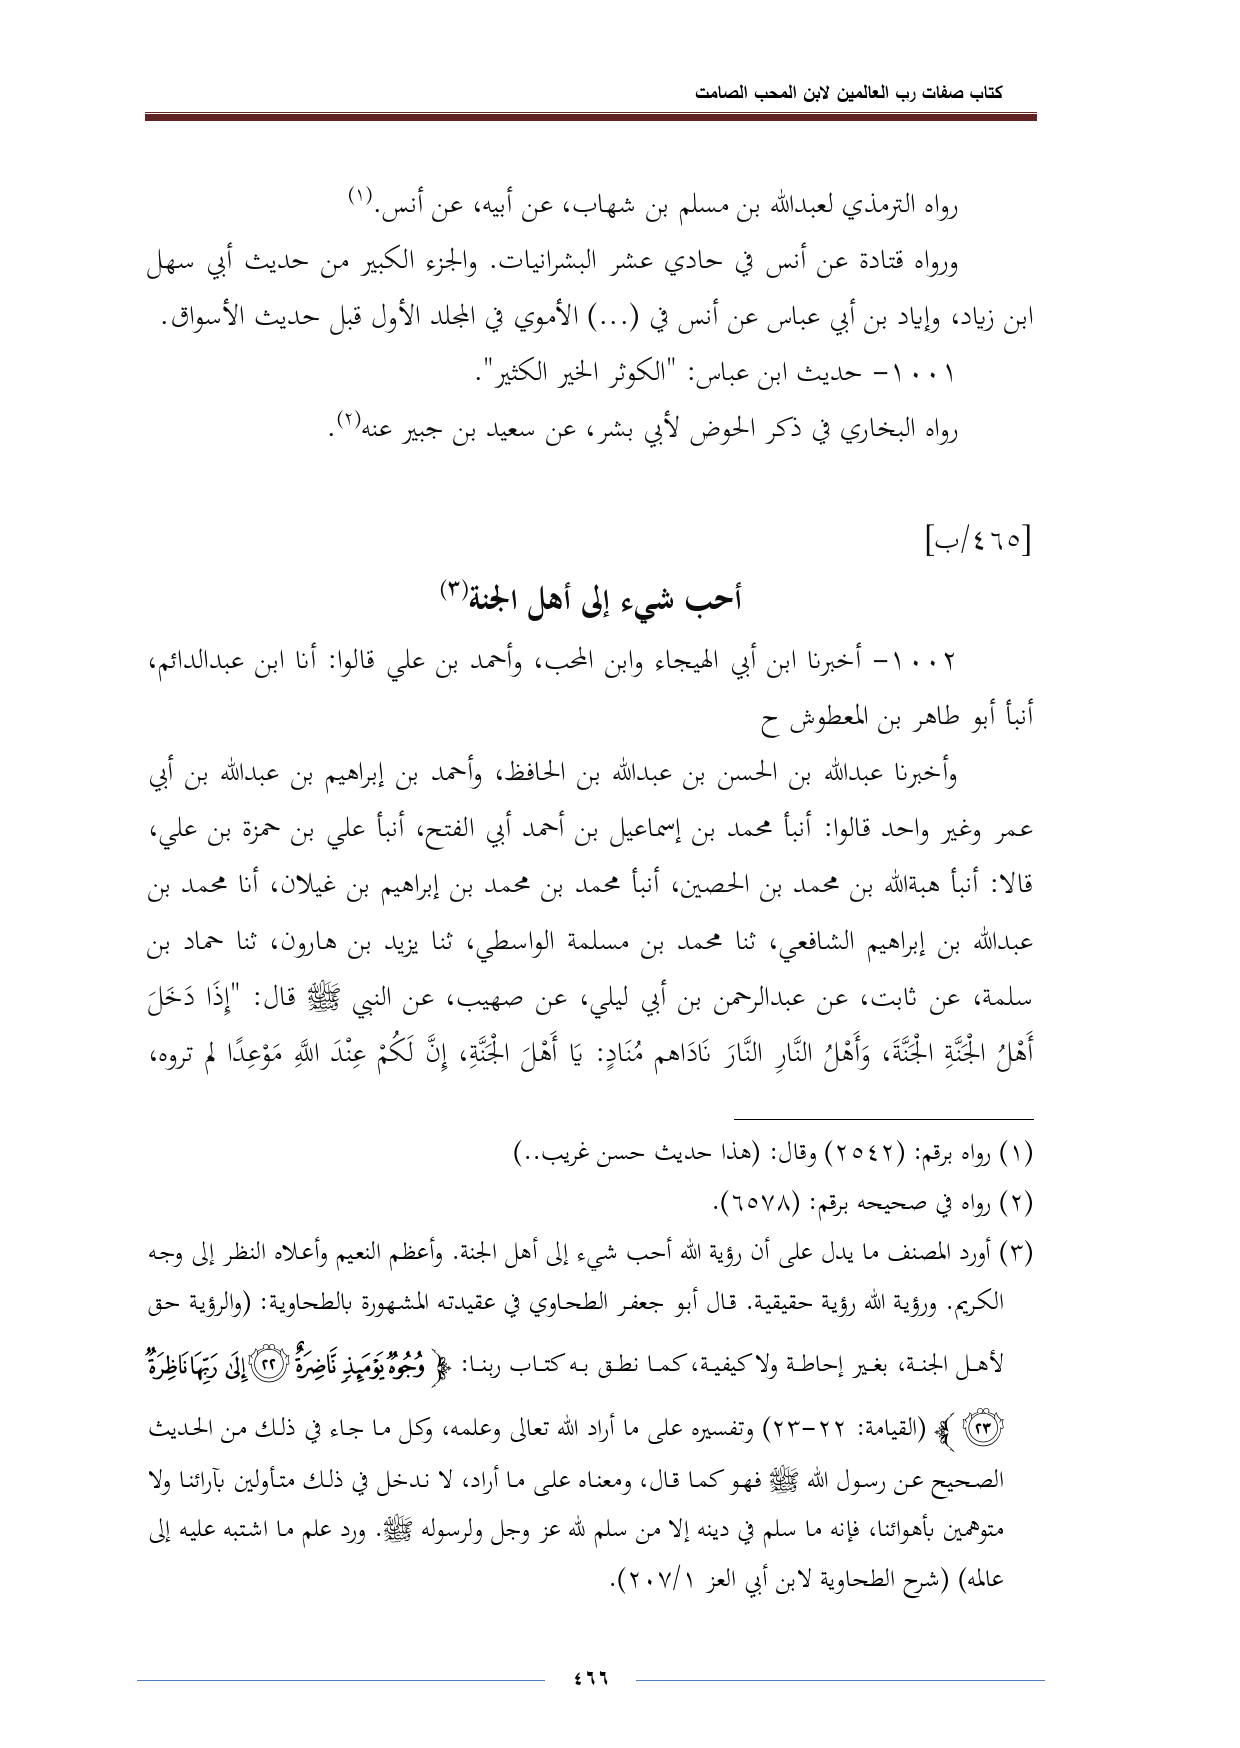 كتاب صفات رب العالمين لابن المحب الصامت
رواه الترمذي لعبدالله بن مسلم بن شهاب، عن أبيه، عن أنس.(١)
ورواه قتادة عن أنس في حادي عشر البشرانيات. والجزء الكبير من حديث أبي سهل
ابن زياد، وإياد بن أبي عباس عن أنس في (...) الأموي في المجلد الأول قبل حديث الأسواق.
١٠٠١- حديث ابن عباس: "الكوثر الخير الكثير".
رواه البخاري في ذكر الحوض لأبي بشر، عن سعيد بن جبير عنه(٢).
[٤٦٥/ب]
أحب شيء إلى أهل الجنة(٣)
١٠٠٢- أخبرنا ابن أبي الهيجاء وابن المحب، وأحمد بن علي قالوا: أنا ابن عبدالدائم،
أنبأ أبو طاهر بن المعطوش ح
وأخبرنا عبدالله بن الحسن بن عبدالله بن الحافظ، وأحمد بن إبراهيم بن عبدالله بن أبي
عمر وغير واحد قالوا: أنبأ محمد بن إسماعيل بن أحمد أبي الفتح، أنبأ علي بن حمزة بن علي،
قالا: أنبأ هبةالله بن محمد بن الحصين، أنبأ محمد بن محمد بن إبراهيم بن غيلان، أنا محمد بن
عبدالله بن إبراهيم الشافعي، ثنا محمد بن مسلمة الواسطي، ثنا يزيد بن هارون، ثنا حماد بن
سلمة، عن ثابت، عن عبدالرحمن بن أبي ليلي، عن صهيب، عن النبي ﷺ قال: "إِذَا دَخَلَ
أَهْلُ الْجَنَّةِ الْجَنَّةَ، وَأَهْلُ النَّارِ النَّارَ نَادَاهم مُنَادٍ: يَا أَهْلَ الْجَنَّةِ، إِنَّ لَكُمْ عِنْدَ اللَّهِ مَوْعِدًا لم تروه،
(١) رواه برقم: (٢٥٤٢) وقال: (هذا حديث حسن غريب..)
(٢) رواه في صحيحه برقم: (٦٥٧٨).
(٣) أورد المصنف ما يدل على أن رؤية الله أحب شيء إلى أهل الجنة. وأعظم النعيم وأعلاه النظر إلى وجه
الكريم. ورؤية الله رؤية حقيقية. قال أبو جعفر الطحاوي في عقيدته المشهورة بالطحاوية: (والرؤية حق
لأهل الجنة، بغير إحاطة ولا كيفية، كما نطق به كتاب ربنا: ﴿ وُجُوهٌ يَوْمَئِذٍ نَّاضِرَةٌ ٢٢ إِلَىٰ رَبِّهَا نَاظِرَةٌ
٢٣ ﴾ (القيامة: ٢٢-٢٣) وتفسيره على ما أراد الله تعالى وعلمه، وكل ما جاء في ذلك من الحديث
الصحيح عن رسول الله ﷺ فهو كما قال، ومعناه على ما أراد، لا ندخل في ذلك متأولين بآرائنا ولا
متوهمين بأهوائنا، فإنه ما سلم في دينه إلا من سلم لله عز وجل ولرسوله ﷺ. ورد علم ما اشتبه عليه إلى
عالمه) (شرح الطحاوية لابن أبي العز ٢٠٧/١).
٤٦٦